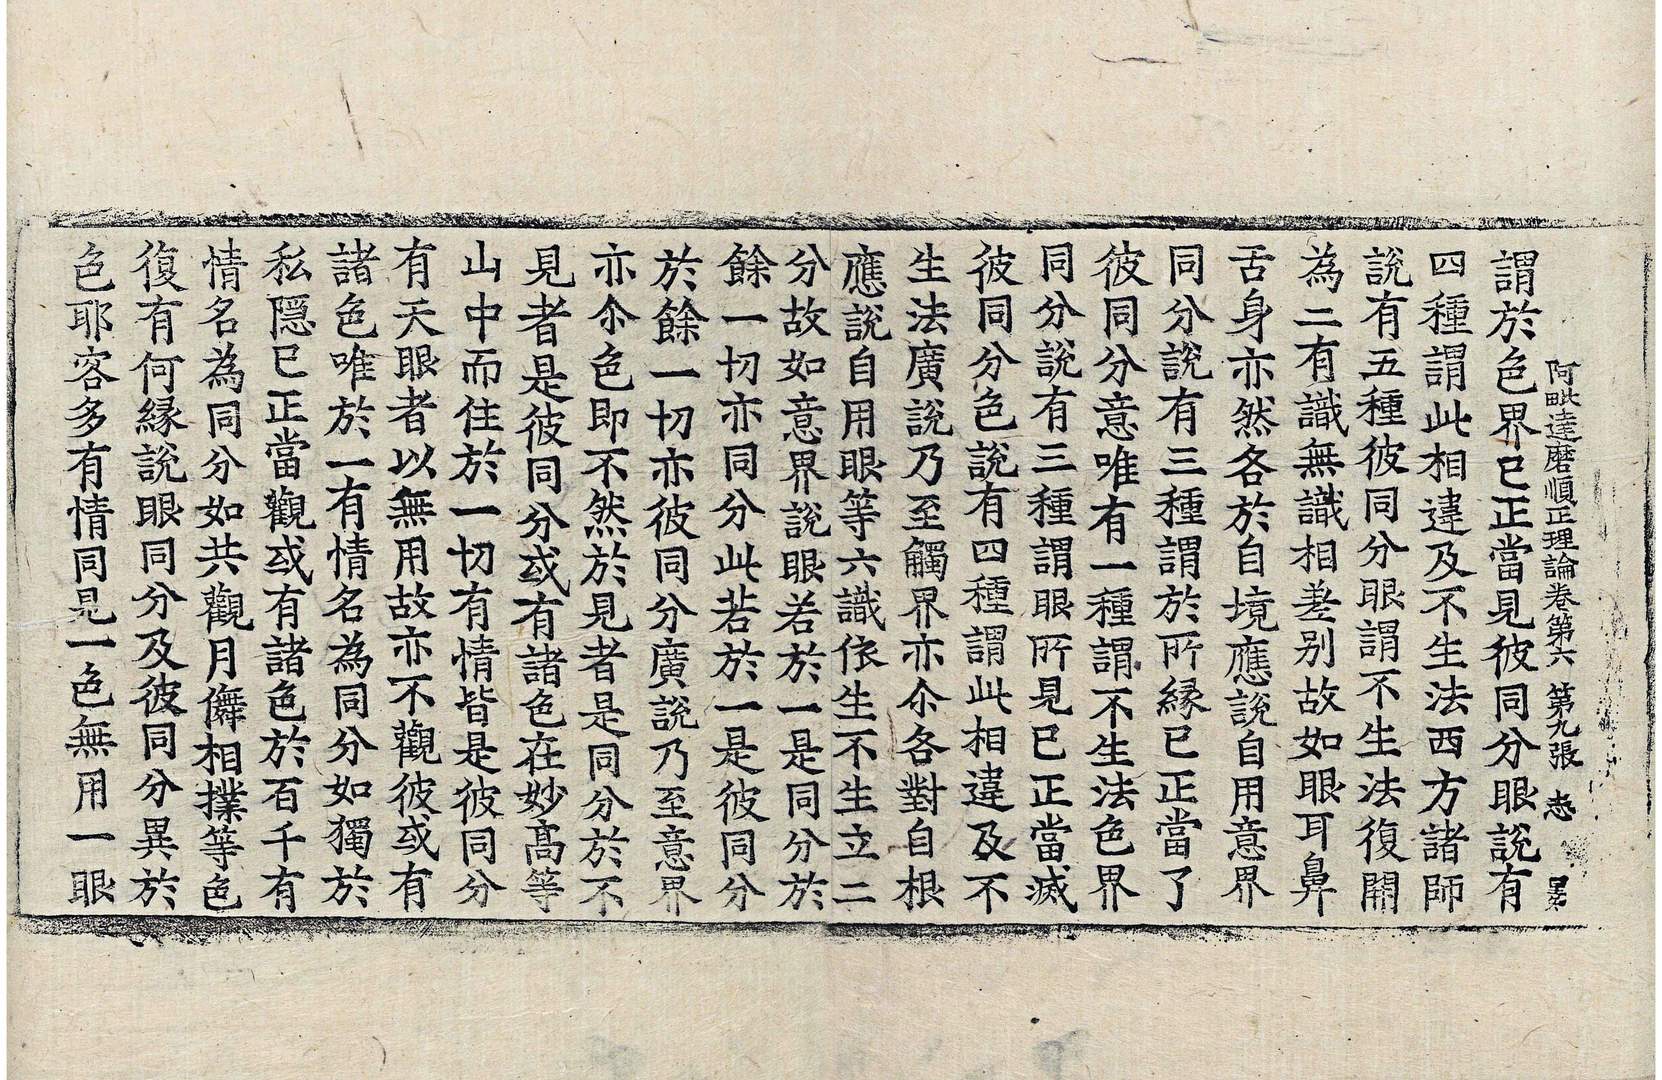 阿毗達磨順正理論卷第六 第九張 志
謂於色界已正當見彼同分眼說有
四種謂此相違及不生法西方諸師
說有五種彼同分眼謂不生法復開
為二有識無識相差別故如眼耳鼻
舌身亦然各於自境應說自用意界
同分說有三種謂於所緣已正當了
彼同分意唯有一種謂不生法色界
同分說有三種謂眼所見已正當滅
彼同分色說有四種謂此相違及不
生法廣說乃至觸界亦尒各對自根
應說自用眼等六識依生不生立二
分故如意界說眼若於一是同分於
餘一切亦同分此若於一是彼同分
於餘一切亦彼同分廣說乃至意界
亦尒色即不然於見者是同分於不
見者是彼同分或有諸色在妙高等
山中而住於一切有情皆是彼同分
有天眼者以無用故亦不觀彼或有
諸色唯於一有情名為同分如獨於
私隱已正當觀或有諸色於百千有
情名為同分如共觀月儛相撲等色
復有何緣說眼同分及彼同分異於
色耶容多有情同見一色無用一眼